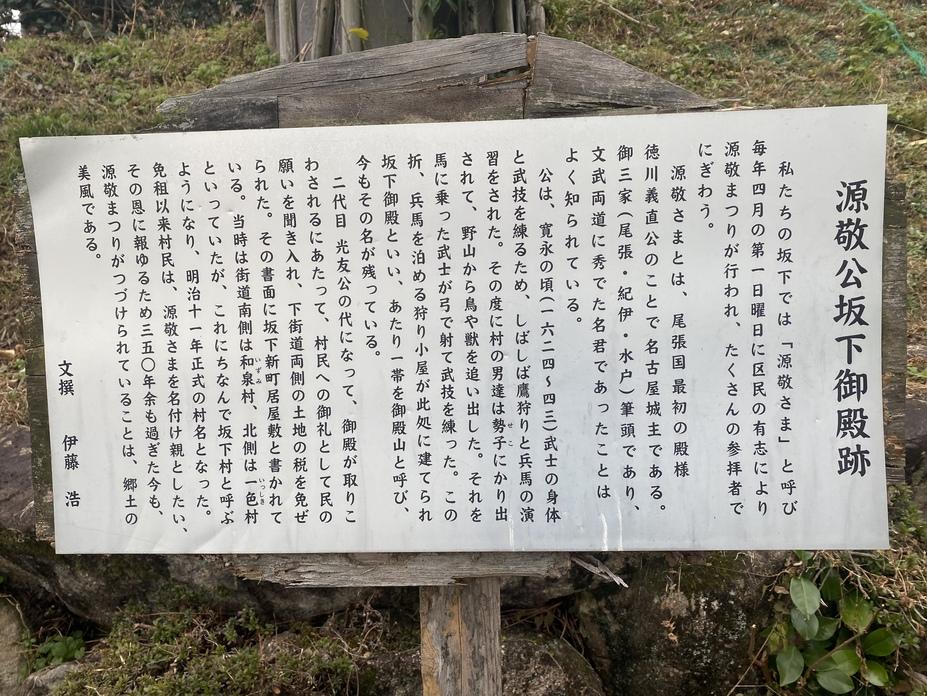 源敬公坂下御殿跡
私たちの坂下では「源敬さま」と呼び
毎年四月の第一日曜日に区民の有志により
源敬まつりが行われ、たくさんの参拝者で
にぎわう。
源敬さまとは、尾張国最初の殿様
徳川義直公のことで名古屋城主である。
御三家(尾張・紀伊・水戸)筆頭であり、
文武両道に秀でた名君であったことは
よく知られている。
公は、寛永の頃(一六二四~四三)武士の身体
と武技を練るため、しばしば鷹狩りと兵馬の演
習をされた。その度に村の男達は勢子にかり出
されて、野山から鳥や獣を追い出した。それを
馬に乗った武士が弓で射て武技を練った。この
折、兵馬を泊める狩り小屋が此処に建てられ
坂下御殿といい、あたり一帯を御殿山と呼び、
今もその名が残っている。
二代目 光友公の代になって、御殿が取りこ
わされるにあたって、村民への御礼として民の
願いを聞き入れ、下街道両側の土地の税を免ぜ
られた。その書面に坂下新町居屋敷と書かれて
いる。当時は街道南側は和泉村、北側は一色村
といっていたが、これにちなんで坂下村と呼ぶ
ようになり、明治十一年正式の村名となった。
免租以来村民は、源敬さまを名付け親としたい、
その恩に報ゆるため三五〇年余も過ぎた今も、
源敬まつりがつづけられていることは、郷土の
美風である。
文撰 伊藤 浩